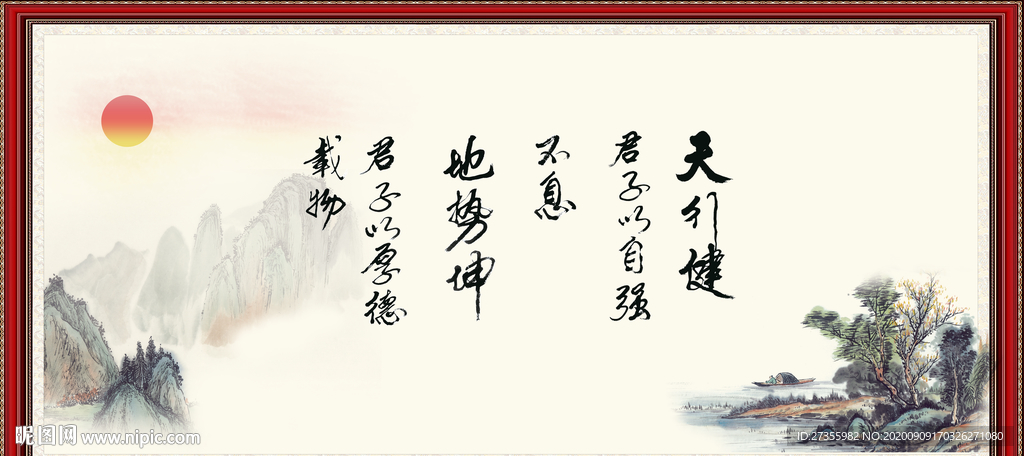 天行健
君子以自强
不息
地势坤
君子以厚德
载物
昵图网 www.nipic.com
ID:27355982 NO:20200909170326271080